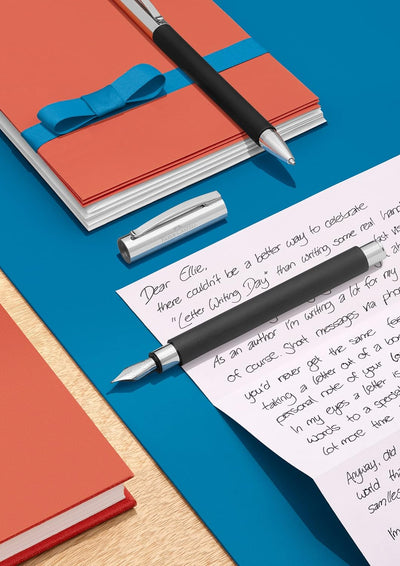 Dear Ellie,
there couldn't be a better way to celebrate
"Letter Writing Day" than writing some real
As an author I'm writing a lot for my
of course. Short messages via
you'd never get the same
taking a letter out of a
personal note of your
In my eyes a letter is
words to a special
lot more time
Anyway, did
world
I'm